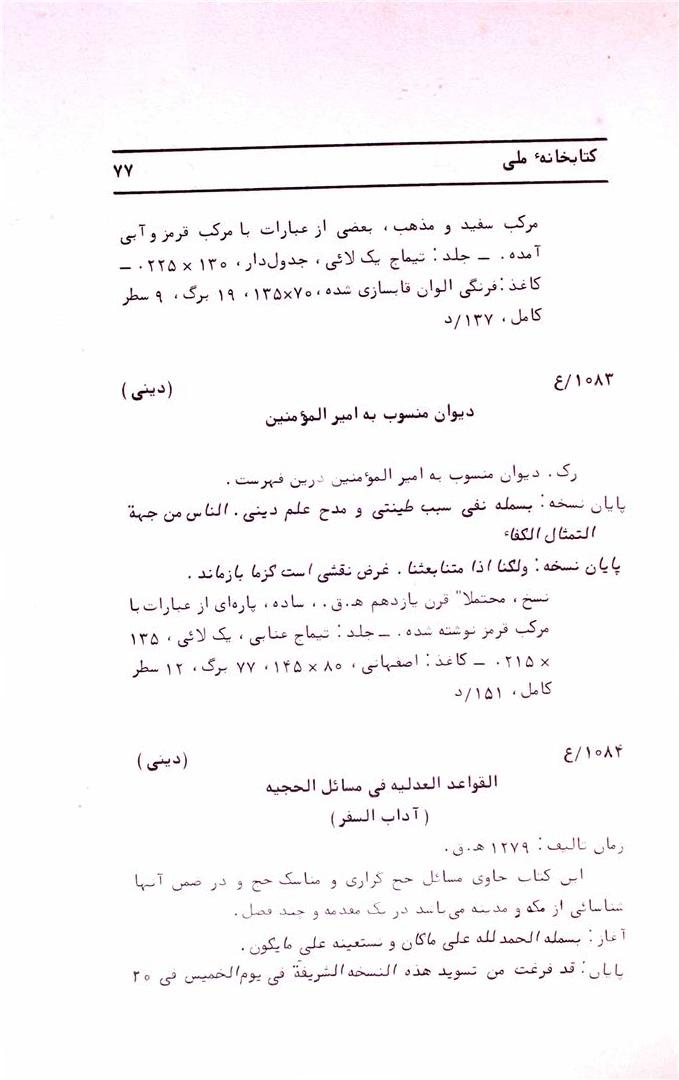 کتابخانهٔ ملی
۷۷
مرکب سفید و مذهب ، بعضی از عبارات با مرکب قرمز و آبی
آمده . ــ جلد : تیماج یک لائی ، جدول‌دار ، ۱۳۰ × ۲۲۵ . ــ
کاغذ : فرنگی الوان قابسازی شده ، ۷۰×۱۳۵ ، ۱۹ برگ ، ۹ سطر
کامل ، ۱۳۷/د
۱۰۸۳/ع
(دینی)
دیوان منسوب به امیر المؤمنین
رک . دیوان منسوب به امیر المؤمنین درین فهرست .
پایان نسخه : بسمله نفی سبب طینتی و مدح علم دینی . الناس من جهة
التمثال الکفاء
پایان نسخه : ولکنا اذا متنا بعثنا . غرض نقشی است کزما بازماند .
نسخ ، محتملا" قرن یازدهم ه‍.ق . ، ساده ، پاره‌ای از عبارات با
مرکب قرمز نوشته شده . ــ جلد : تیماج عنابی ، یک لائی ، ۱۳۵
× ۲۱۵ . ــ کاغذ : اصفهانی ، ۸۰ × ۱۴۵ ، ۷۷ برگ ، ۱۲ سطر
کامل ، ۱۵۱/د
۱۰۸۴/ع
(دینی)
القواعد العدلیه فی مسائل الحجیه
(آداب السفر)
زمان تالیف : ۱۲۷۹ ه‍.ق .
این کتاب حاوی مسائل حج گزاری و مناسک حج و در ضمن آنها
شناسائی از مکه و مدینه می‌باشد در یک مقدمه و چند فصل .
آغاز : بسمله الحمدلله علی ماکان و نستعینه علی مایکون .
پایان : قد فرغت من تسوید هذه النسخه الشریفة فی یوم‌الخمیس فی ۲۰